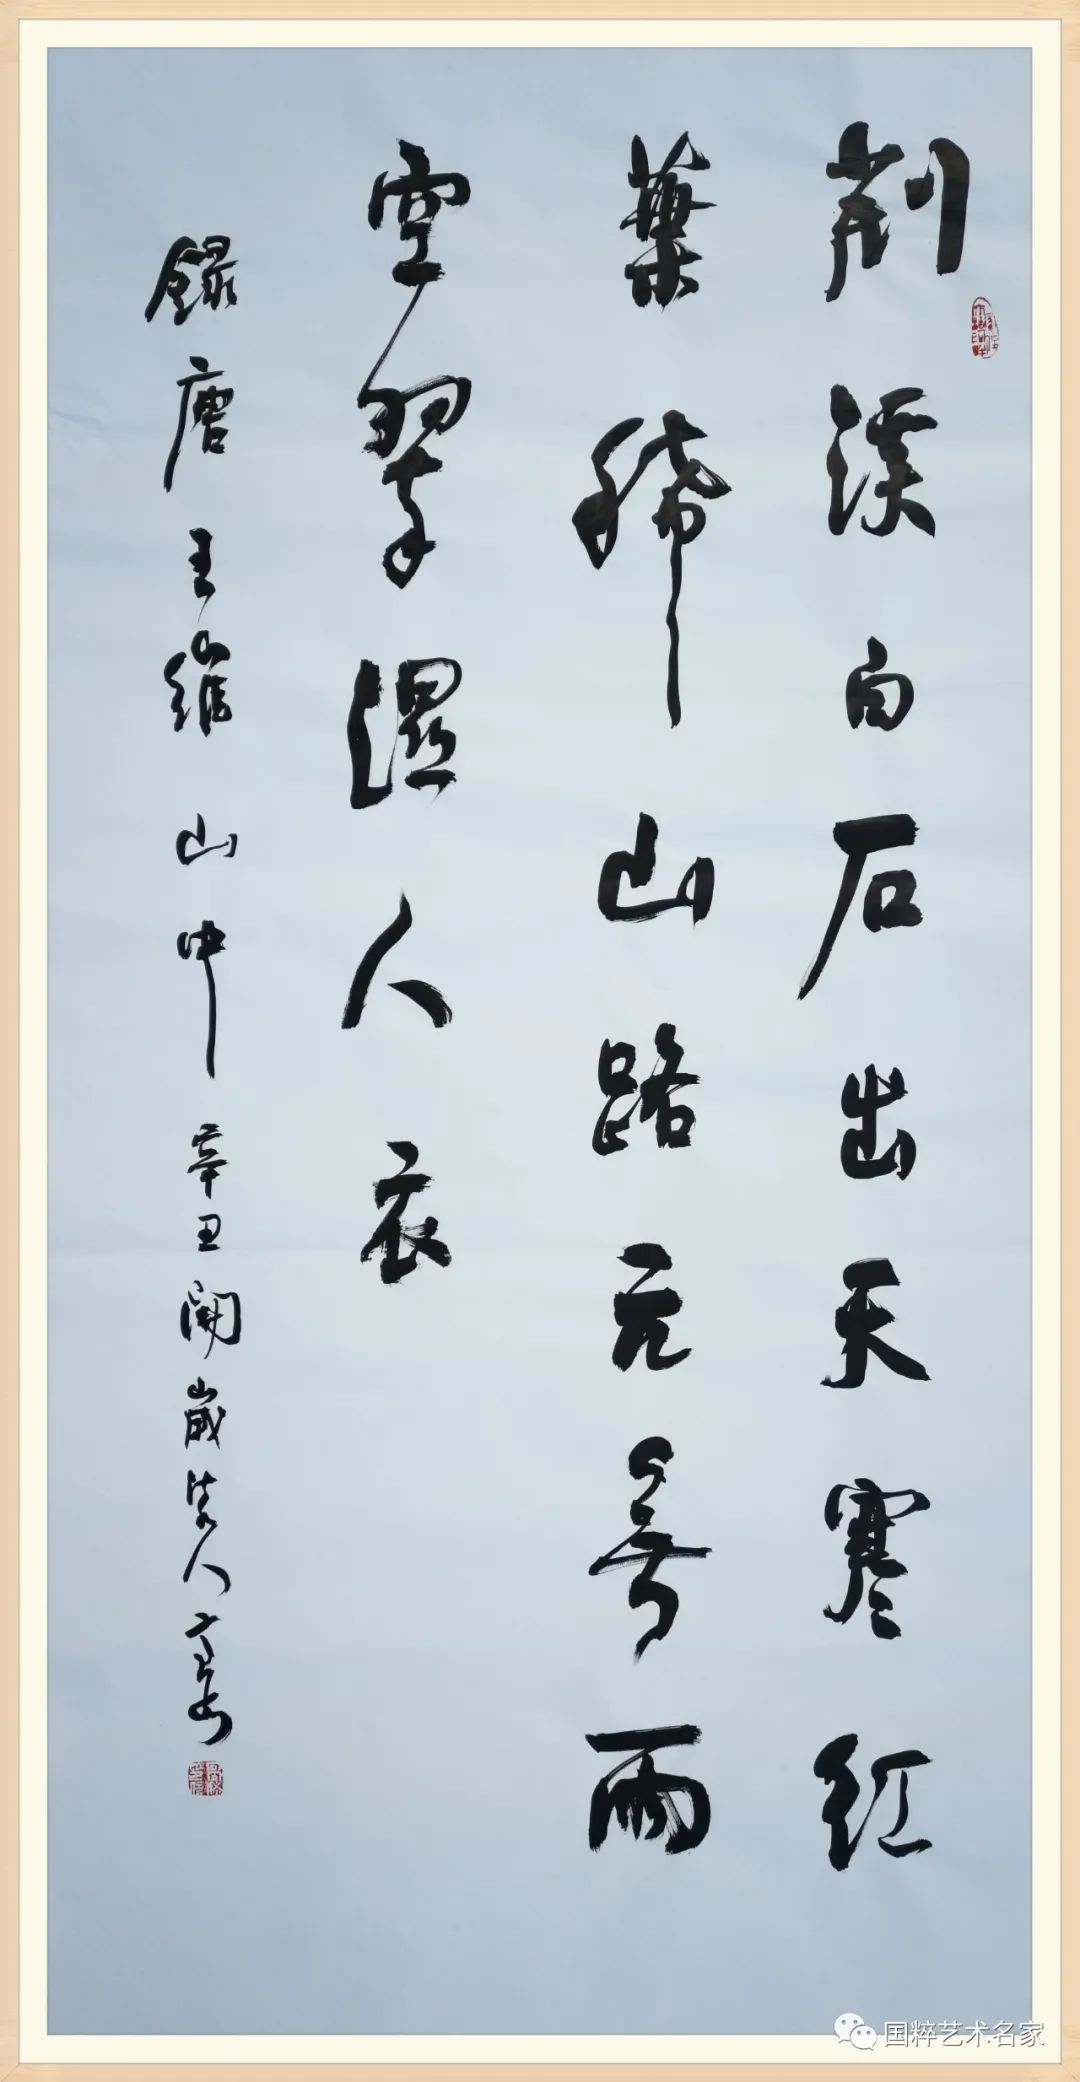 荆溪白石出天寒紅
葉稀山路元無雨
空翠濕人衣
錄唐王維山中 辛丑開歲
国粹艺术名家